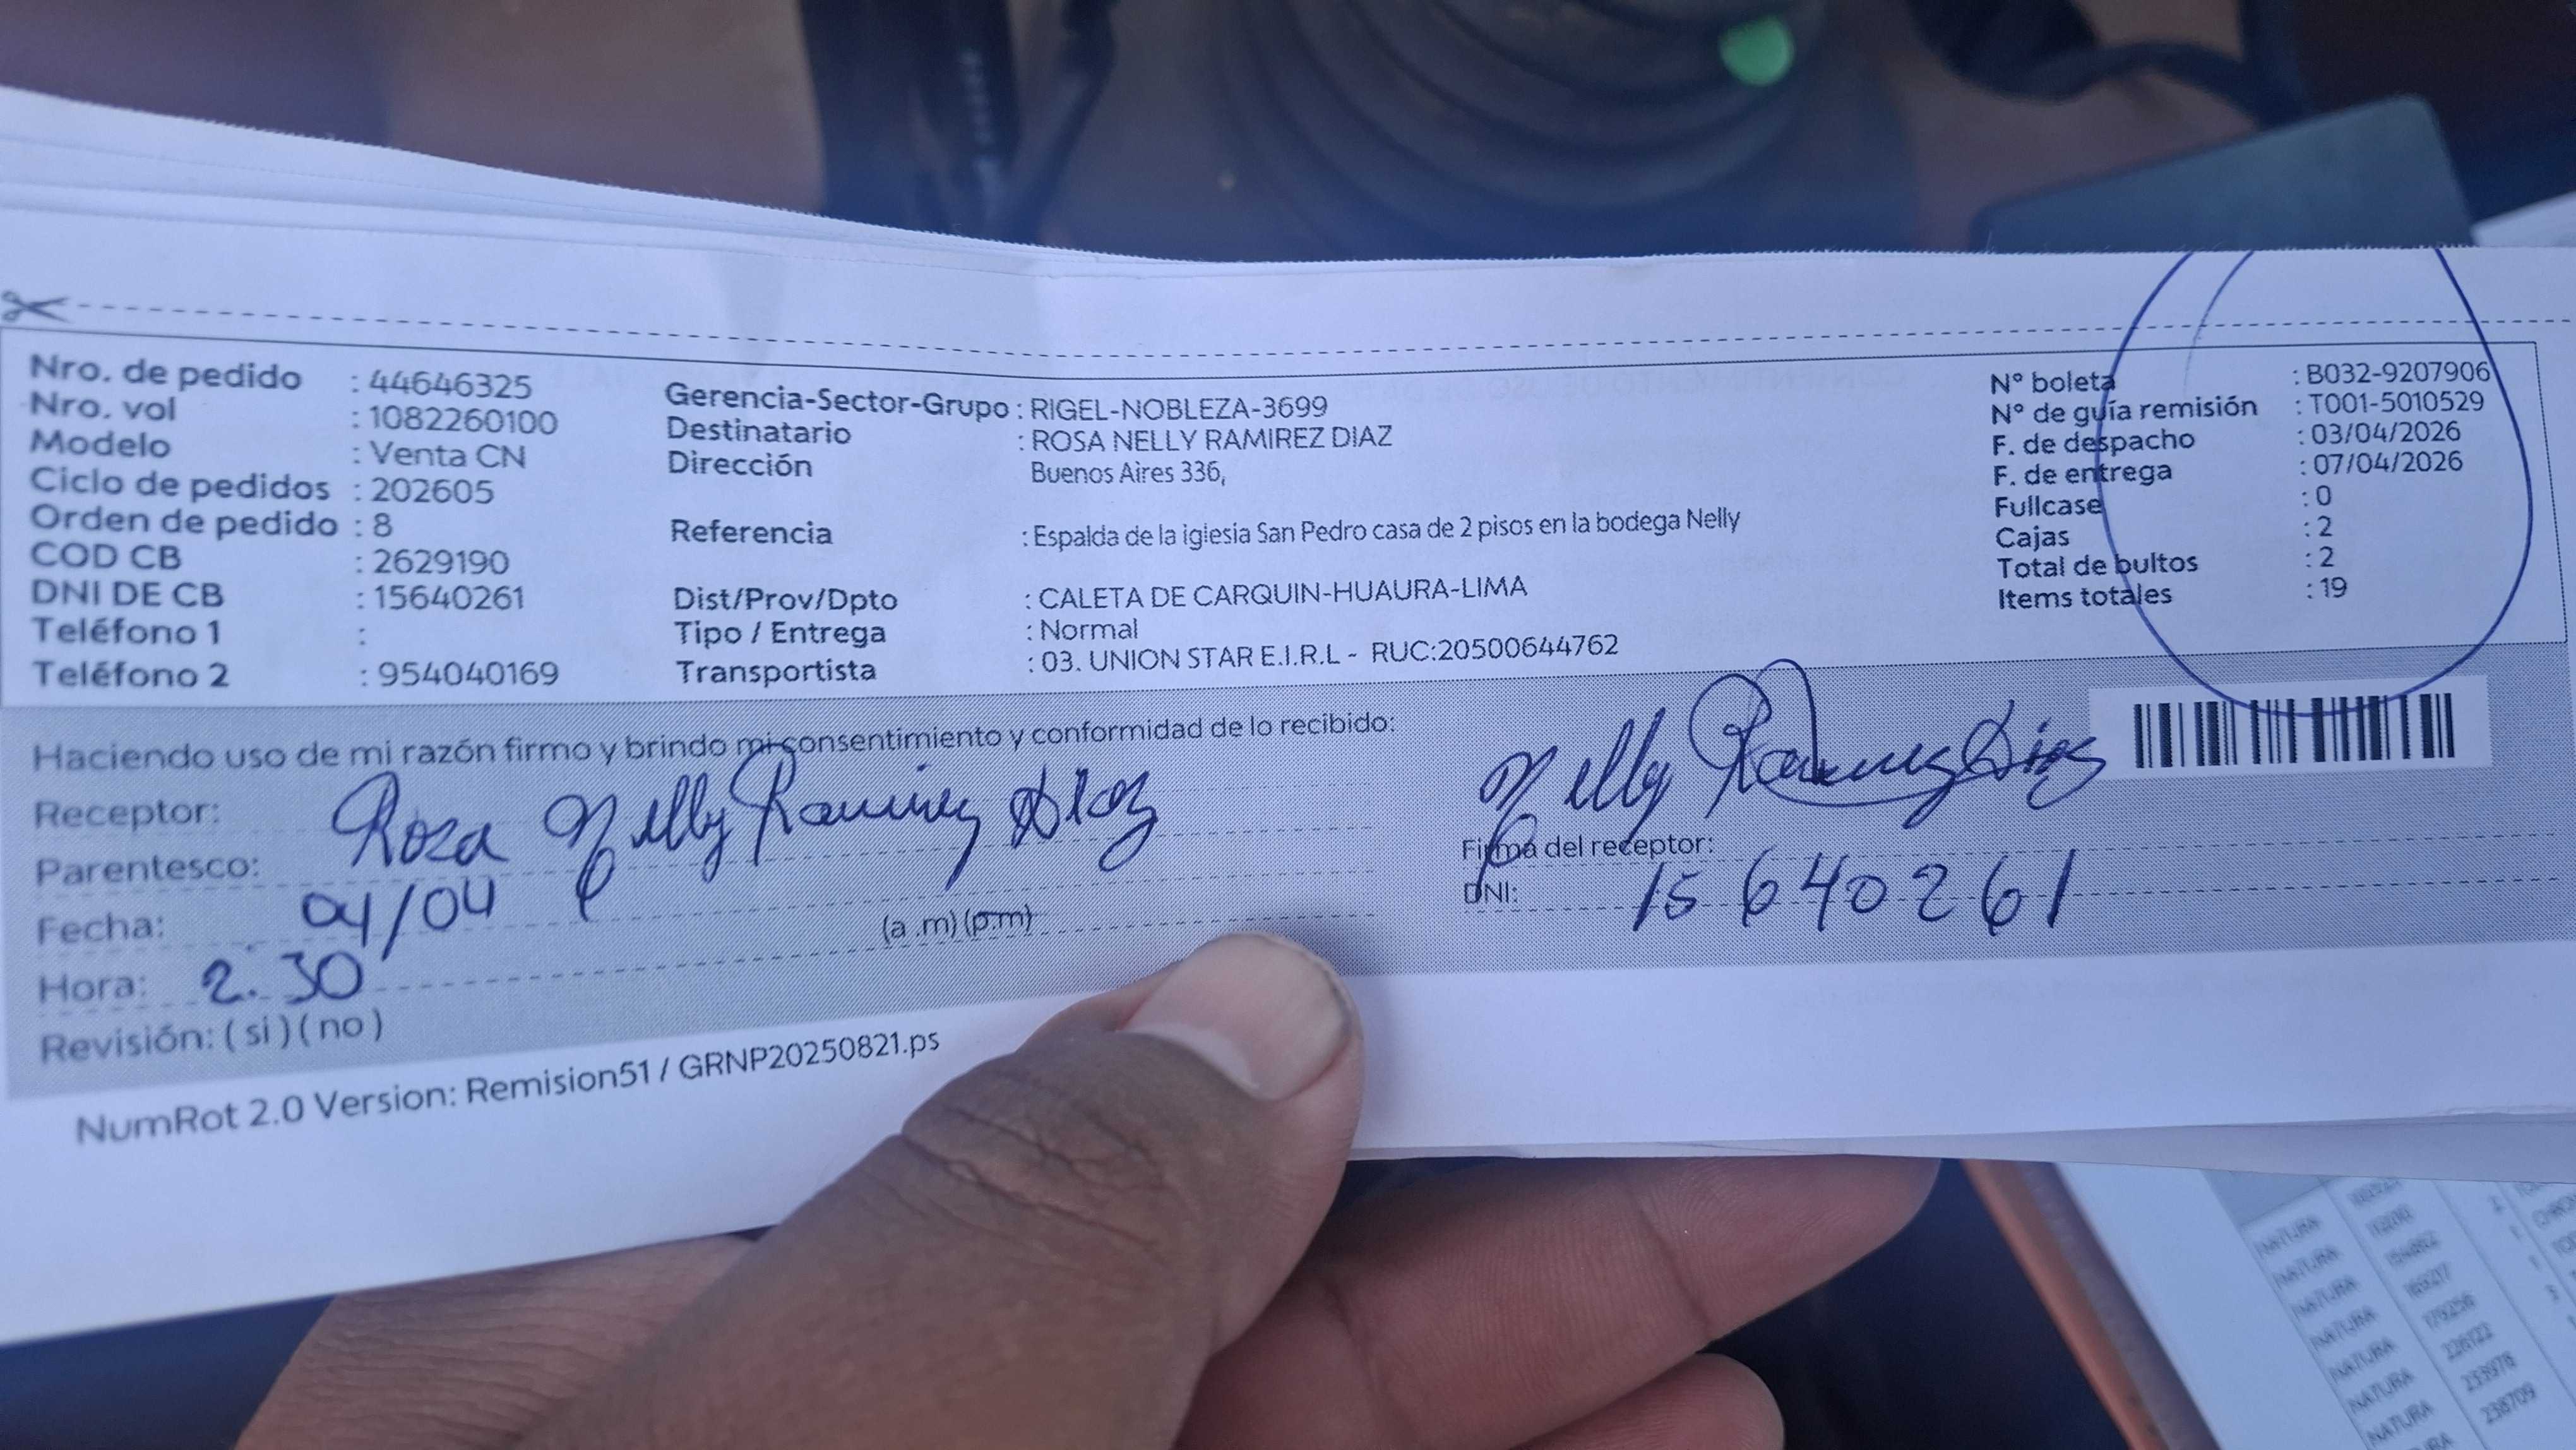 Nro. de pedido : 44646325
Nro. vol : 1082260100
Modelo : Venta CN
Ciclo de pedidos : 202605
Orden de pedido : 8
COD CB : 2629190
DNI DE CB : 15640261
Teléfono 1 :
Teléfono 2 : 954040169
Gerencia-Sector-Grupo : RIGEL-NOBLEZA-3699
Destinatario : ROSA NELLY RAMIREZ DIAZ
Dirección Buenos Aires 336,
Referencia : Espalda de la iglesia San Pedro casa de 2 pisos en la bodega Nelly
Dist/Prov/Dpto : CALETA DE CARQUIN-HUAURA-LIMA
Tipo / Entrega : Normal
Transportista : 03. UNION STAR E.I.R.L - RUC:20500644762
N° boleta : B032-9207906
N° de guía remisión : T001-5010529
F. de despacho : 03/04/2026
F. de entrega : 07/04/2026
Fullcase : 0
Cajas : 2
Total de bultos : 2
Items totales : 19
Haciendo uso de mi razón firmo y brindo mi consentimiento y conformidad de lo recibido:
Receptor: Rosa Nelly Ramirez Diaz
Parentesco:
Fecha: 04/04
(a .m) (p.m)
Hora: 2.30
Revisión: ( si ) ( no )
Nelly Ramirez Diaz
Firma del receptor:
DNI: 15640261
NumRot 2.0 Version: Remision51 / GRNP20250821.ps
NATURA
NATURA
NATURA 154862
NATURA 169217
NATURA 179256
NATURA 226122
NATURA 233978
238709